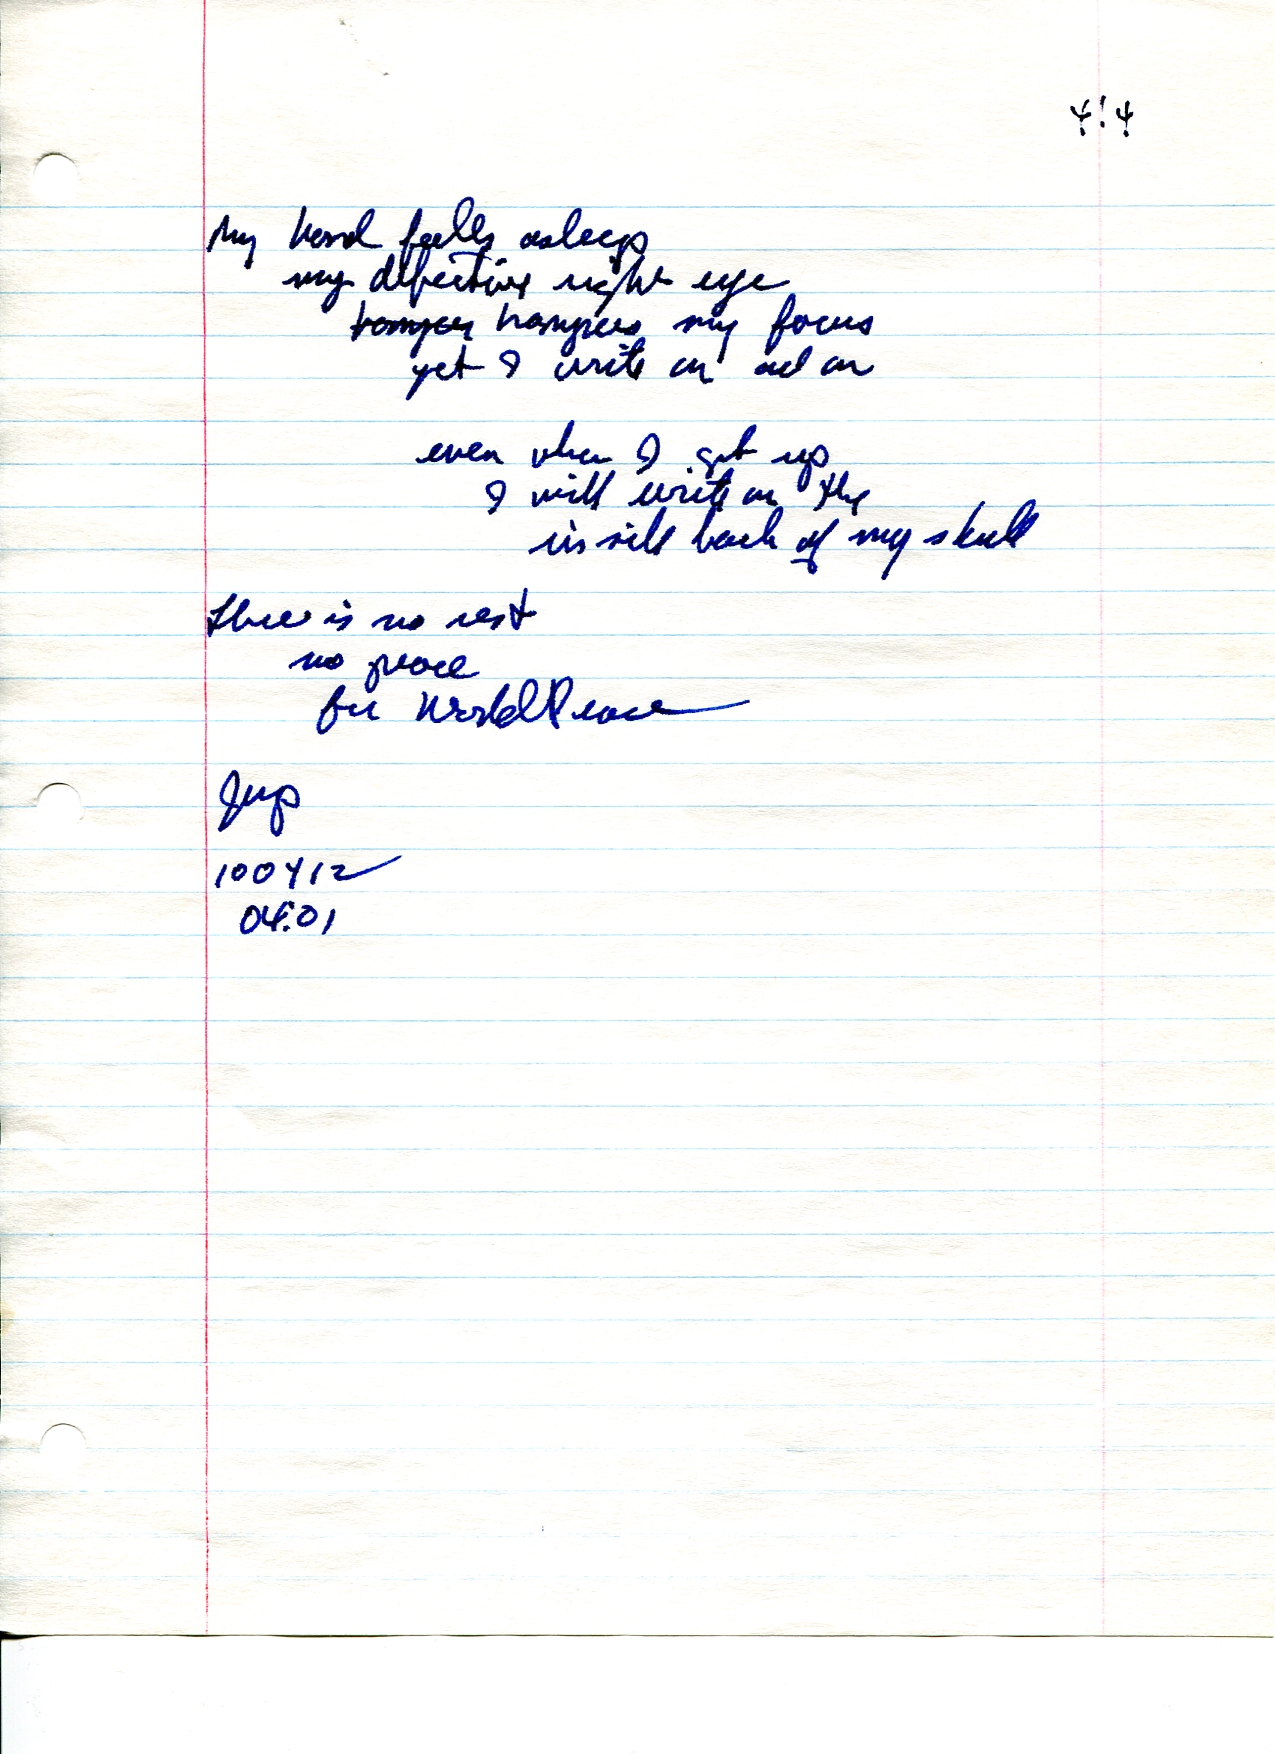 My hand falls asleep
my defective right eye
hampers my focus
yet I write on and on
even when I get up
I will write on the
inside back of my skull
there is no rest
no peace
for WorldPeace
JWP
100412
04:01